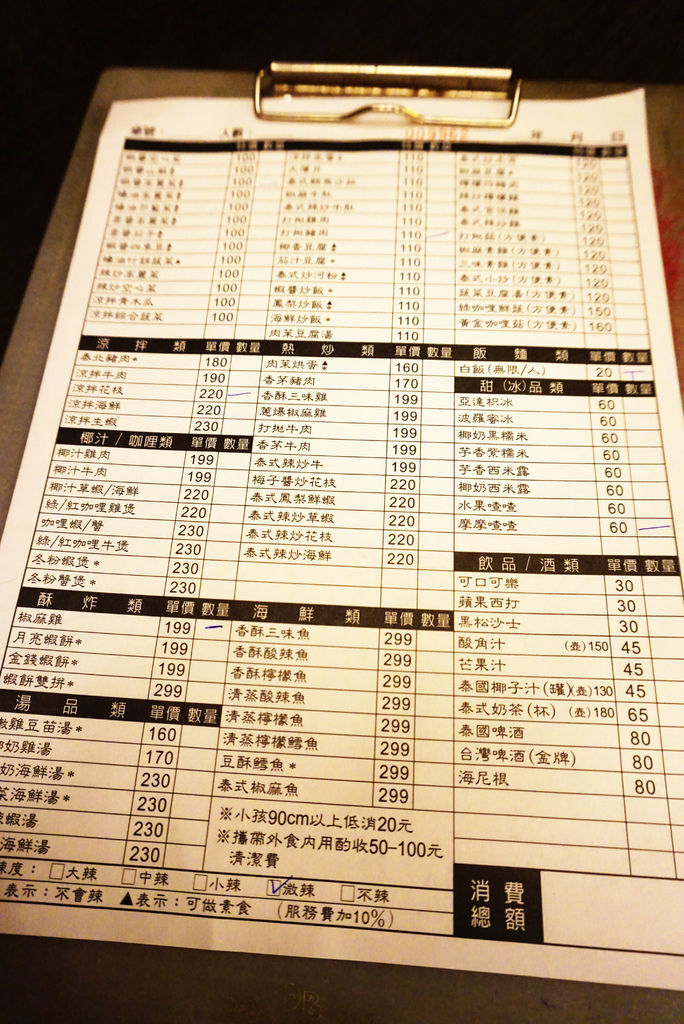 人數:
009962
年 月 日
蝦醬空心菜 100
100
100
100
100
100
100
100
蠔油什錦蔬菜▲ 100
辣炒高麗菜 100
辣炒空心菜 100
涼拌青木瓜 100
涼拌綜合蔬菜 100
110
110
110
110
泰式辣炒牛肚 110
打拋雞肉 110
打拋豬肉 110
椰香豆腐 110
茄汁豆腐* 110
泰式炒河粉 110
蝦醬炒飯* 110
鳳梨炒飯 110
海鮮炒飯* 110
肉茉豆腐湯 110
120
120
120
120
120
120
打拋菇(方便素) 120
椒麻素雞(方便素) 120
三味素雞(方便素) 120
泰式小炒(方便素) 120
蔬菜豆腐湯(方便素) 120
綠咖哩鮮蔬(方便素) 150
黃金咖哩菇(方便素) 160
涼拌類 單價 數量
泰北豬肉* 180
涼拌牛肉 190
涼拌花枝 220
涼拌海鮮 220
涼拌生蝦 230
椰汁/咖哩類 單價 數量
椰汁雞肉 199
椰汁牛肉 199
椰汁草蝦/海鮮 220
綠/紅咖哩雞煲 220
咖哩蝦/蟹 230
綠/紅咖哩牛煲 230
冬粉蝦煲* 230
冬粉蟹煲* 230
酥炸類 單價 數量
椒麻雞 199
月亮蝦餅* 199
金錢蝦餅* 199
蝦餅雙拼* 299
湯品類 單價 數量
嫩雞豆苗湯* 160
椰奶雞湯 170
奶海鮮湯* 230
菜海鮮湯* 230
蝦湯 230
海鮮湯 230
熱炒類 單價 數量
肉茉烘蛋 160
香茅豬肉 170
香酥三味雞 199
蔥爆椒麻雞 199
打拋牛肉 199
香茅牛肉 199
泰式辣炒牛 199
梅子醬炒花枝 220
泰式鳳梨鮮蝦 220
泰式辣炒草蝦 220
泰式辣炒花枝 220
泰式辣炒海鮮 220
海鮮類 單價 數量
香酥三味魚 299
香酥酸辣魚 299
香酥檸檬魚 299
清蒸酸辣魚 299
清蒸檸檬魚 299
清蒸檸檬鱈魚 299
豆酥鱈魚* 299
泰式椒麻魚 299
※小孩90cm以上低消20元
※攜帶外食內用酌收50-100元
清潔費
飯麵類 單價 數量
白飯(無限/人) 20
甜(冰)品類 單價 數量
亞達枳冰 60
波羅蜜冰 60
椰奶黑糯米 60
芋香紫糯米 60
芋香西米露 60
椰奶西米露 60
水果喳喳 60
摩摩喳喳 60
飲品/酒類 單價 數量
可口可樂 30
蘋果西打 30
黑松沙士 30
酸角汁 (壺)150 45
芒果汁 45
泰國椰子汁(罐)(壺)130 45
泰式奶茶(杯) (壺)180 65
泰國啤酒 80
台灣啤酒(金牌) 80
海尼根 80
辣度: □大辣 □中辣 □小辣 ☑微辣 □不辣
表示:不會辣 ▲表示:可做素食 (服務費加10%)
消費
總額